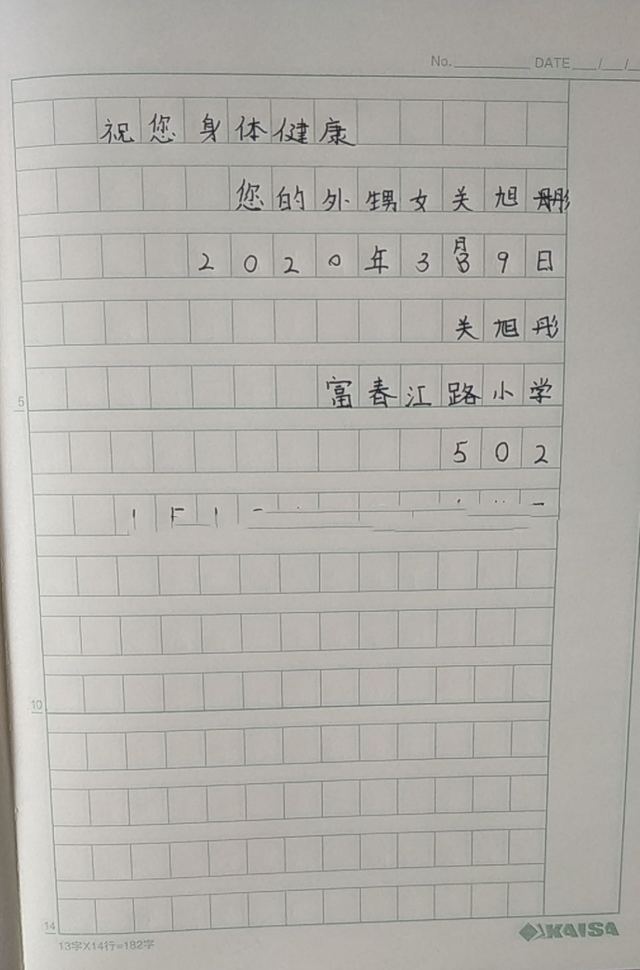 No. DATE / /
祝您身体健康
您的外甥女关旭彤
2020年3月9日
关旭彤
5
富春江路小学
502
10
14
13字X14行=182字
KAISA